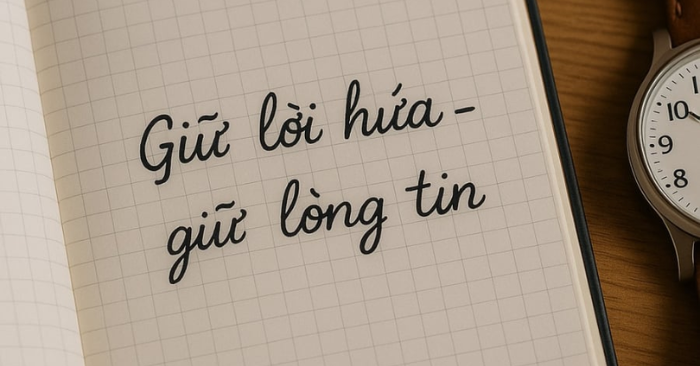 Giữ lời hứa -
giữ lòng tin
10
9
8